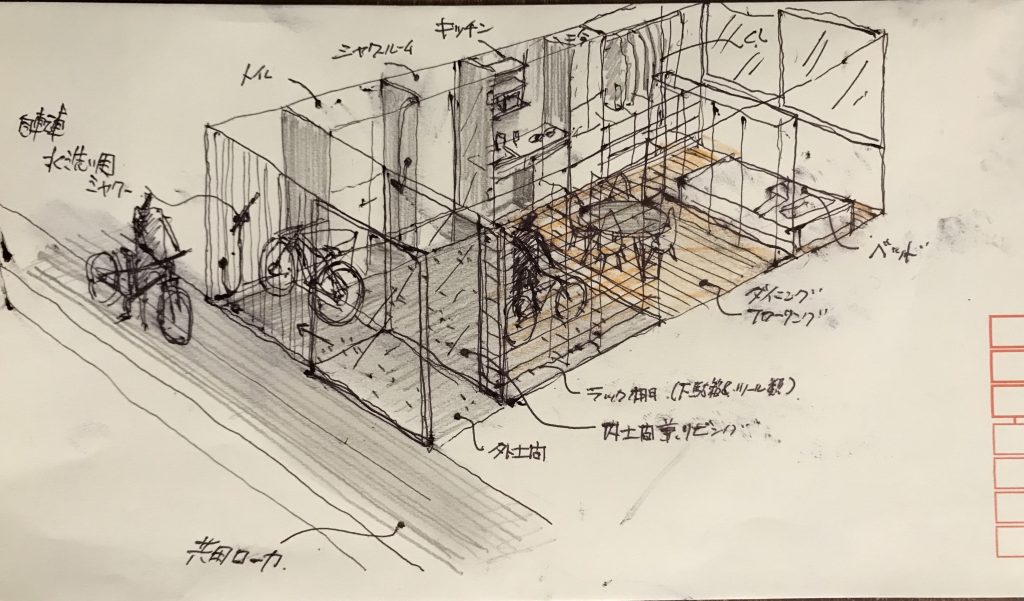 キッチン
シャワルーム
トイレ
CL
自転車
水洗い用
シャワー
ベット
ダイニング
フローリング
ラック棚 (下駄箱&ツール類)
内土間兼リビング
外土間
共用ローカ